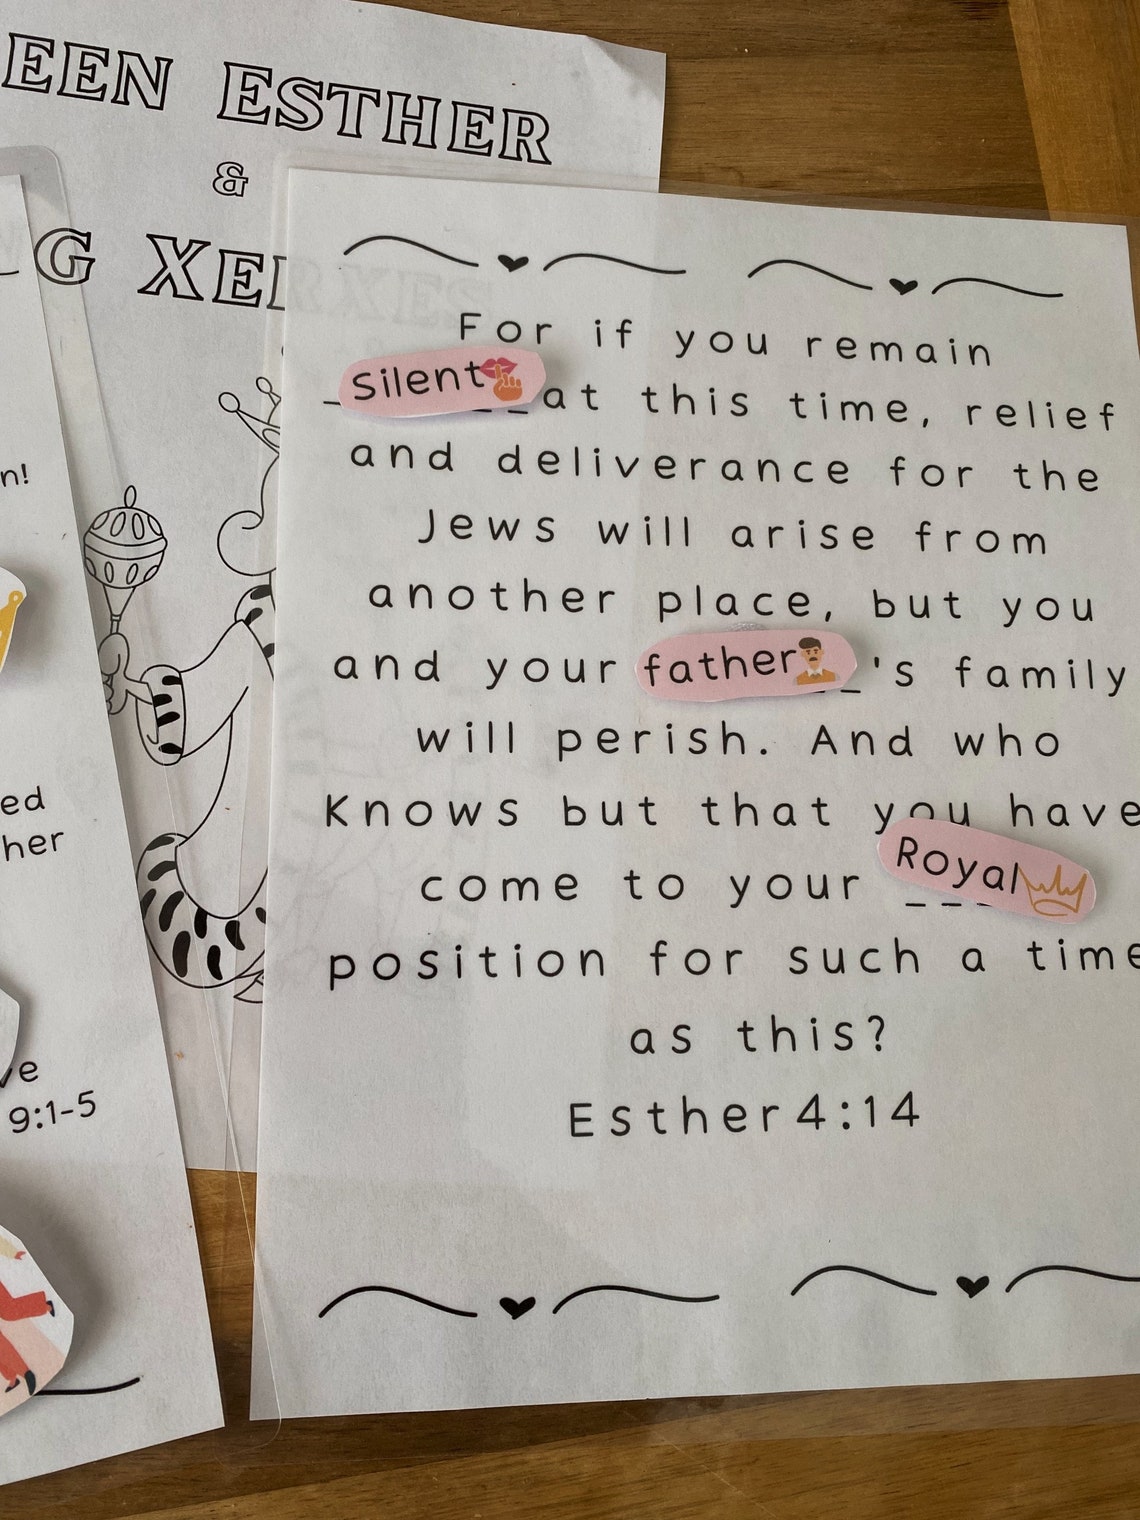 EEN ESTHER
&
G XER
n!
ed
her
ve
9:1-5
For if you remain
Silent at this time, relief
and deliverance for the
Jews will arise from
another place, but you
and your father's family
will perish. And who
Knows but that you have
come to your Royal
position for such a time
as this?
Esther 4:14